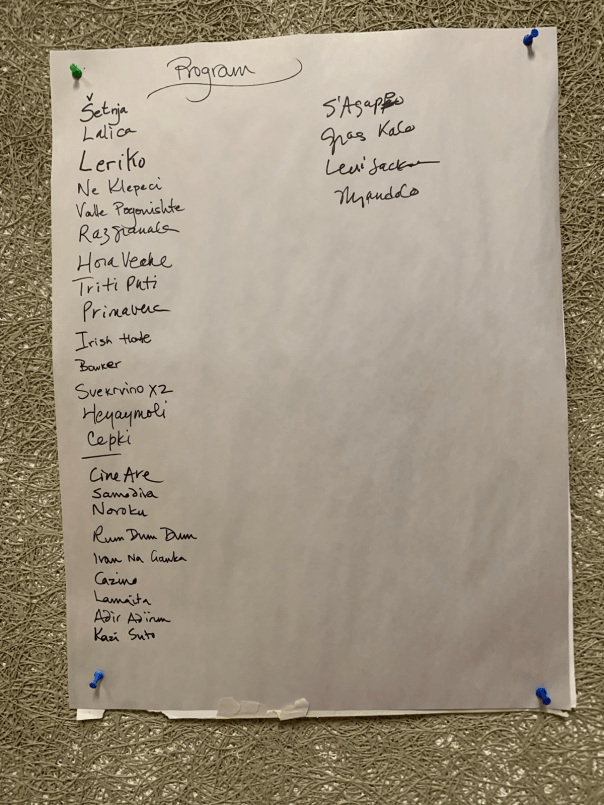 Program
Šetnja
Lalica
Leriko
Ne Klepeci
Valle Pogonishte
Razgranala
Hora Veche
Triti Puti
Primavera
Irish
Bowker
Svekrvino x2
Heyaymoli
Cepki
Cine Are
Samodiva
Noroku
Rum Dum Dum
Ivan Na Ganka
Cazino
Lamaita
Adir Adirim
Kazi Suto
S'Agapo
Gras Kalo
Levi Jackson
Nyandolo